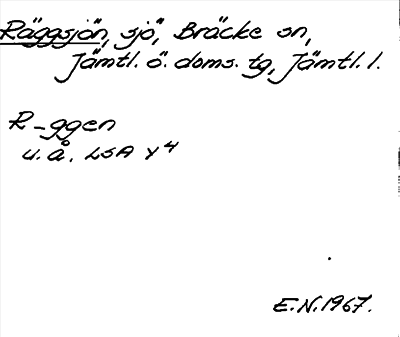 Räggsjön, sjö, Bräcke sn,
Jämtl. ö. doms. tg, Jämtl. l.
R-ggen
u. å. LSA Y4
E.N. 1967.